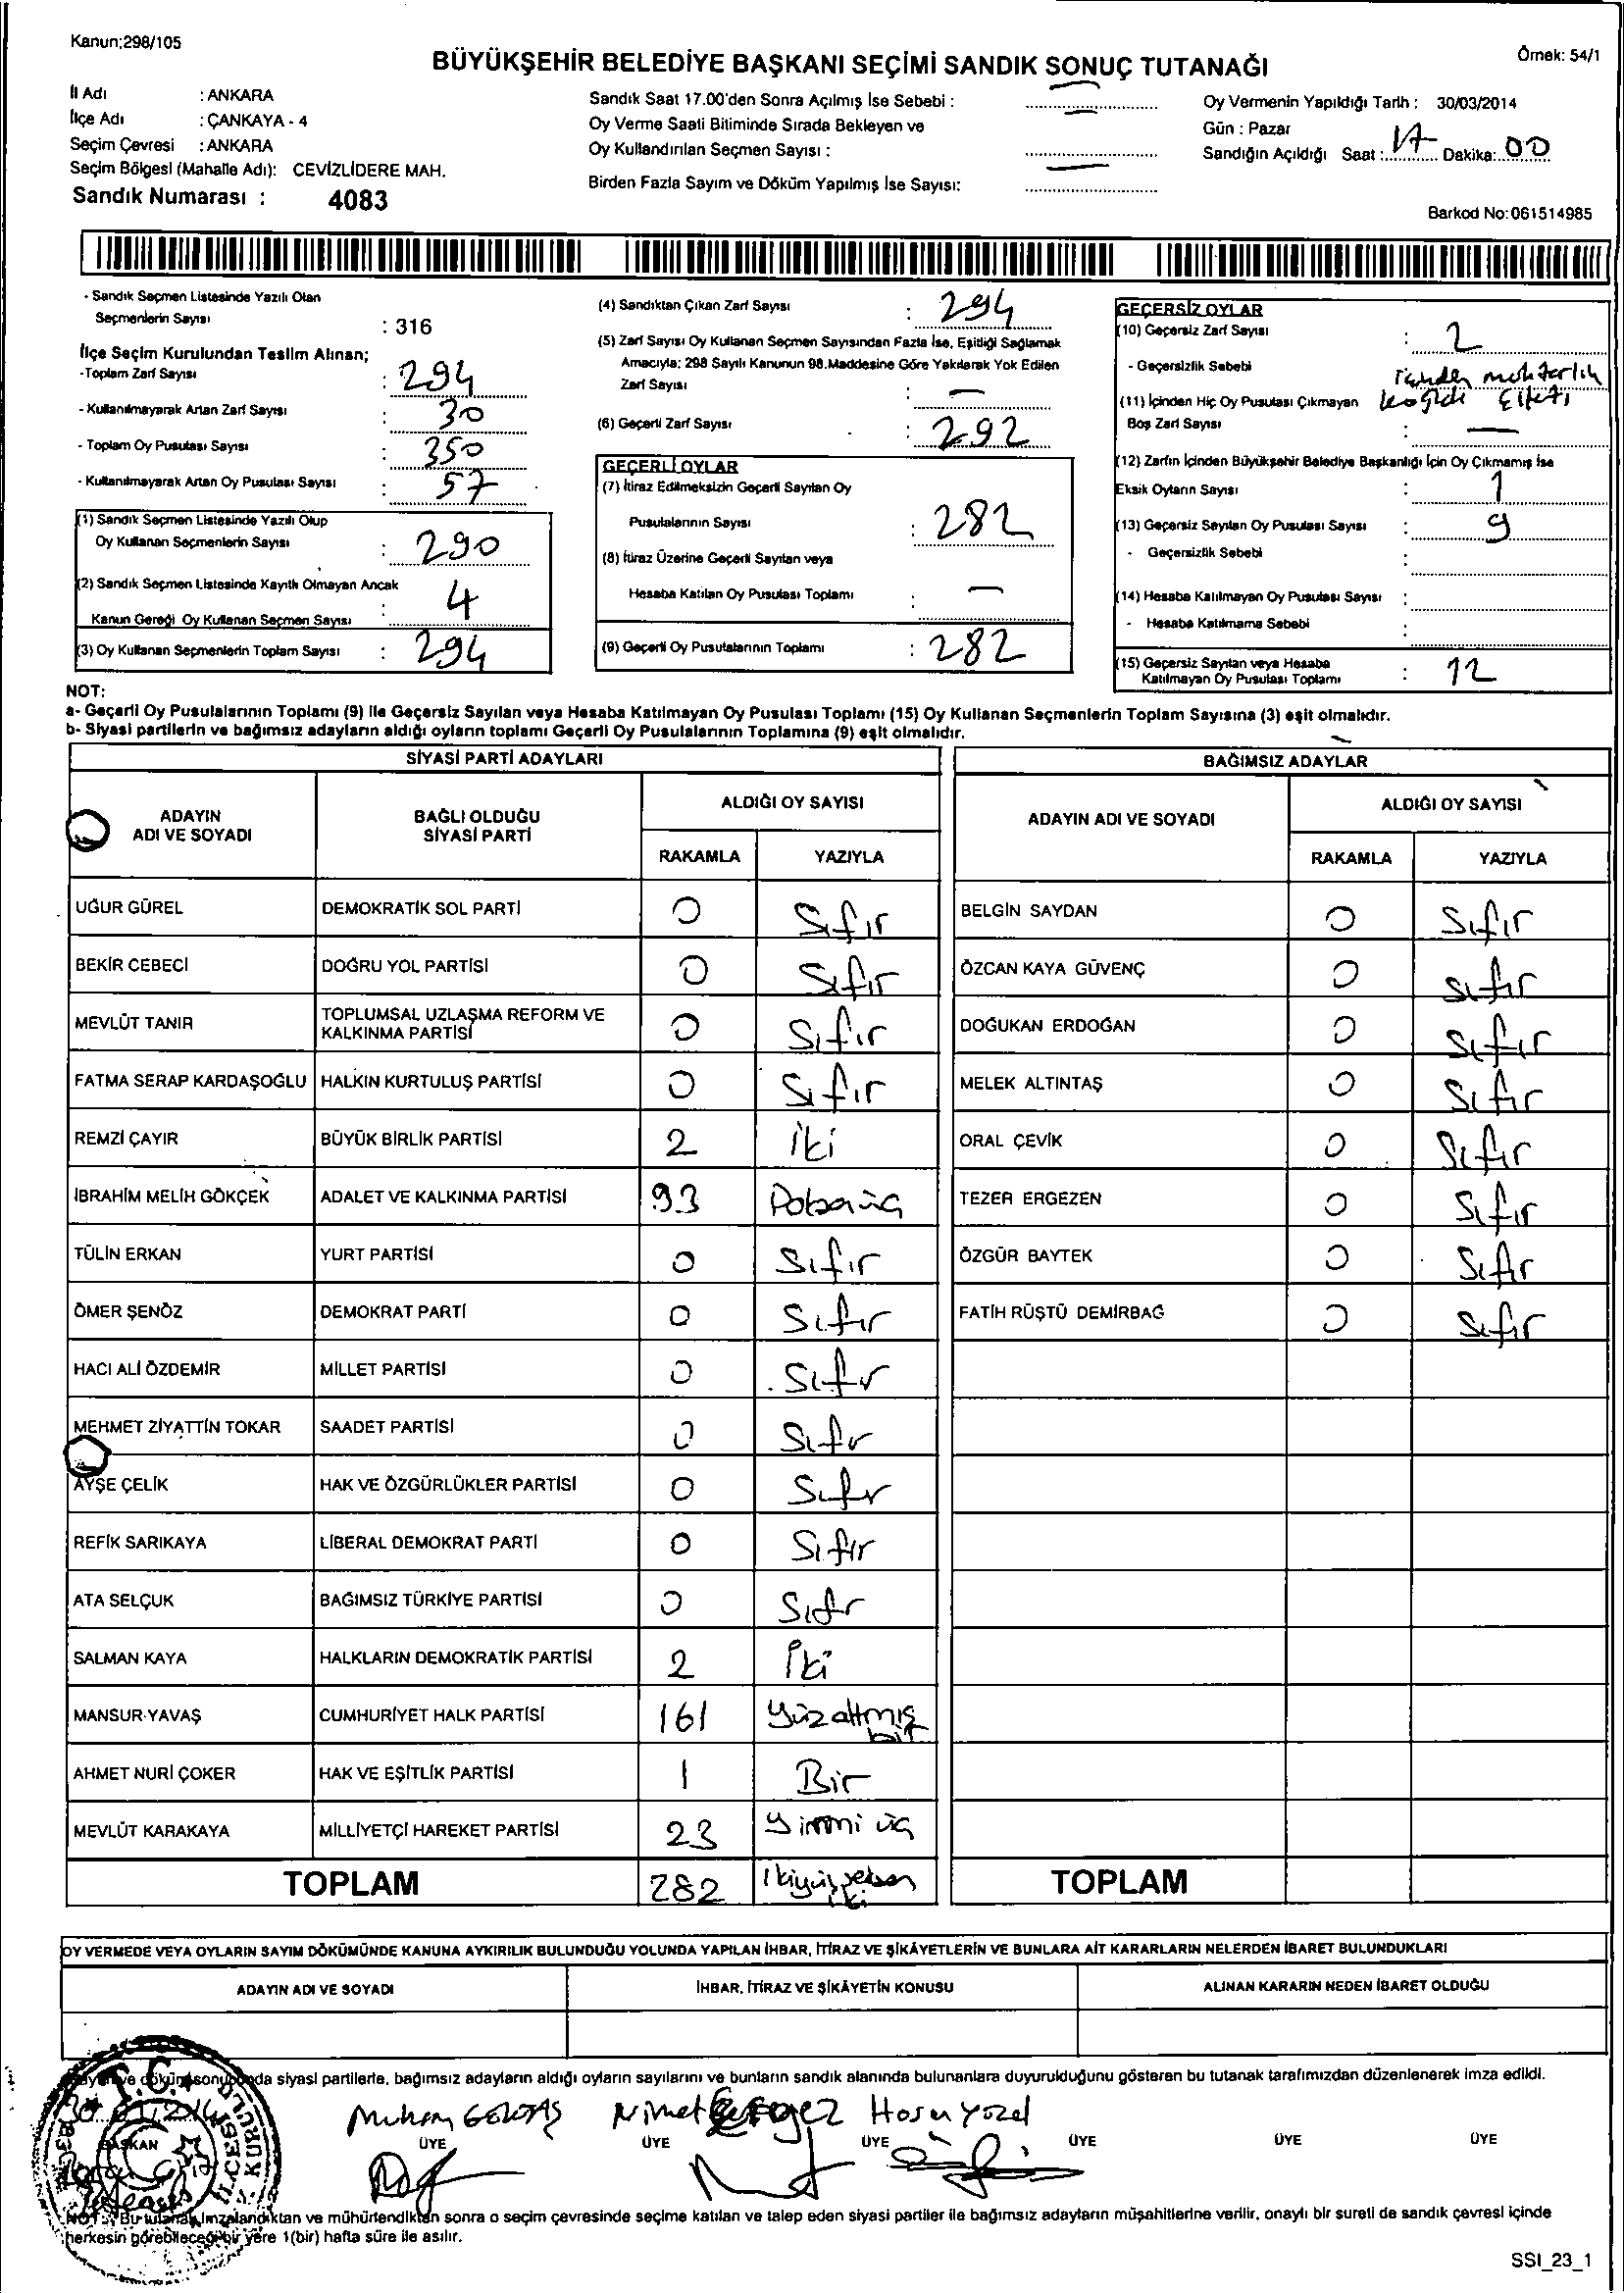 Kanun;298/105
BÜYÜKŞEHİR BELEDİYE BAŞKANI SEÇİMİ SANDIK SONUÇ TUTANAĞI
Örnek: 54/1
İl Adı : ANKARA
İlçe Adı : ÇANKAYA - 4
Seçim Çevresi : ANKARA
Seçim Bölgesi (Mahalle Adı): CEVİZLİDERE MAH.
Sandık Numarası : 4083
Sandık Saat 17.00'den Sonra Açılmış İse Sebebi : —
Oy Verme Saati Bitiminde Sırada Bekleyen ve
Oy Kullandırılan Seçmen Sayısı : —
Birden Fazla Sayım ve Döküm Yapılmış İse Sayısı: —
Oy Vermenin Yapıldığı Tarih : 30/03/2014
Gün : Pazar
Sandığın Açıldığı Saat : 17 Dakika: 00
Barkod No:061514985
- Sandık Seçmen Listesinde Yazılı Olan
Seçmenlerin Sayısı : 316
İlçe Seçim Kurulundan Teslim Alınan;
-Toplam Zarf Sayısı : 294
- Kullanılmayarak Artan Zarf Sayısı : 30
- Toplam Oy Pusulası Sayısı : 350
- Kullanılmayarak Artan Oy Pusulası Sayısı : 57
(1) Sandık Seçmen Listesinde Yazılı Olup
Oy Kullanan Seçmenlerin Sayısı : 290
(2) Sandık Seçmen Listesinde Kayıtlı Olmayan Ancak
Kanun Gereği Oy Kullanan Seçmen Sayısı : 4
(3) Oy Kullanan Seçmenlerin Toplam Sayısı : 294
(4) Sandıktan Çıkan Zarf Sayısı : 294
(5) Zarf Sayısı Oy Kullanan Seçmen Sayısından Fazla İse, Eşitliği Sağlamak
Amacıyla; 298 Sayılı Kanunun 98.Maddesine Göre Yakılarak Yok Edilen
Zarf Sayısı : —
(6) Geçerli Zarf Sayısı : 292
GEÇERLİ OYLAR
(7) İtiraz Edilmeksizin Geçerli Sayılan Oy
Pusulalarının Sayısı : 282
(8) İtiraz Üzerine Geçerli Sayılan veya
Hesaba Katılan Oy Pusulası Toplamı : —
(9) Geçerli Oy Pusulalarının Toplamı : 282
GEÇERSİZ OYLAR
(10) Geçersiz Zarf Sayısı : 2
- Geçersizlik Sebebi muhtarlık
(11) İçinden Hiç Oy Pusulası Çıkmayan
Boş Zarf Sayısı : —
(12) Zarfın İçinden Büyükşehir Belediye Başkanlığı İçin Oy Çıkmamış İse
Eksik Oyların Sayısı : 1
(13) Geçersiz Sayılan Oy Pusulası Sayısı : 9
- Geçersizlik Sebebi :
(14) Hesaba Katılmayan Oy Pusulası Sayısı :
- Hesaba Katılmama Sebebi :
(15) Geçersiz Sayılan veya Hesaba
Katılmayan Oy Pusulası Toplamı : 12
NOT:
a- Geçerli Oy Pusulalarının Toplamı (9) ile Geçersiz Sayılan veya Hesaba Katılmayan Oy Pusulası Toplamı (15) Oy Kullanan Seçmenlerin Toplam Sayısına (3) eşit olmalıdır.
b- Siyasi partilerin ve bağımsız adayların aldığı oyların toplamı Geçerli Oy Pusulalarının Toplamına (9) eşit olmalıdır.
SİYASİ PARTİ ADAYLARI
ADAYIN ADI VE SOYADI BAĞLI OLDUĞU SİYASİ PARTİ ALDIĞI OY SAYISI
RAKAMLA YAZIYLA
UĞUR GÜREL DEMOKRATİK SOL PARTİ 0 Sıfır
BEKİR CEBECİ DOĞRU YOL PARTİSİ 0 Sıfır
MEVLÜT TANIR TOPLUMSAL UZLAŞMA REFORM VE KALKINMA PARTİSİ 0 Sıfır
FATMA SERAP KARDAŞOĞLU HALKIN KURTULUŞ PARTİSİ 0 Sıfır
REMZİ ÇAYIR BÜYÜK BİRLİK PARTİSİ 2 İki
İBRAHİM MELİH GÖKÇEK ADALET VE KALKINMA PARTİSİ 93
TÜLİN ERKAN YURT PARTİSİ 0 Sıfır
ÖMER ŞENÖZ DEMOKRAT PARTİ 0 Sıfır
HACI ALİ ÖZDEMİR MİLLET PARTİSİ 0 Sıfır
MEHMET ZİYATTİN TOKAR SAADET PARTİSİ 0 Sıfır
AYŞE ÇELİK HAK VE ÖZGÜRLÜKLER PARTİSİ 0 Sıfır
REFİK SARIKAYA LİBERAL DEMOKRAT PARTİ 0 Sıfır
ATA SELÇUK BAĞIMSIZ TÜRKİYE PARTİSİ 0 Sıfır
SALMAN KAYA HALKLARIN DEMOKRATİK PARTİSİ 2 İki
MANSUR YAVAŞ CUMHURİYET HALK PARTİSİ 161 yüzaltmış bir
AHMET NURİ ÇOKER HAK VE EŞİTLİK PARTİSİ 1 Bir
MEVLÜT KARAKAYA MİLLİYETÇİ HAREKET PARTİSİ 23 Yirmi üç
TOPLAM 282 İkiyüzseksen iki
BAĞIMSIZ ADAYLAR
ADAYIN ADI VE SOYADI ALDIĞI OY SAYISI
RAKAMLA YAZIYLA
BELGİN SAYDAN 0 Sıfır
ÖZCAN KAYA GÜVENÇ 0 Sıfır
DOĞUKAN ERDOĞAN 0 Sıfır
MELEK ALTINTAŞ 0 Sıfır
ORAL ÇEVİK 0 Sıfır
TEZER ERGEZEN 0 Sıfır
ÖZGÜR BAYTEK 0 Sıfır
FATİH RÜŞTÜ DEMİRBAĞ 0 Sıfır
TOPLAM
OY VERMEDE VEYA OYLARIN SAYIM DÖKÜMÜNDE KANUNA AYKIRILIK BULUNDUĞU YOLUNDA YAPILAN İHBAR, İTİRAZ VE ŞİKÂYETLERİN VE BUNLARA AİT KARARLARIN NELERDEN İBARET BULUNDUKLARI
ADAYIN ADI VE SOYADI İHBAR, İTİRAZ VE ŞİKÂYETİN KONUSU ALINAN KARARIN NEDEN İBARET OLDUĞU
siyasi partilerle, bağımsız adayların aldığı oyların sayılarını ve bunların sandık alanında bulunanlara duyurulduğunu gösteren bu tutanak tarafımızdan düzenlenerek imza edildi.
Nimet
BAŞKAN ÜYE ÜYE ÜYE ÜYE ÜYE ÜYE
NOT : Bu tutanak imzalandıktan ve mühürlendikten sonra o seçim çevresinde seçime katılan ve talep eden siyasi partiler ile bağımsız adayların müşahitlerine verilir, onaylı bir sureti de sandık çevresi içinde
herkesin görebileceği bir yere 1(bir) hafta süre ile asılır.
SSI_23_1